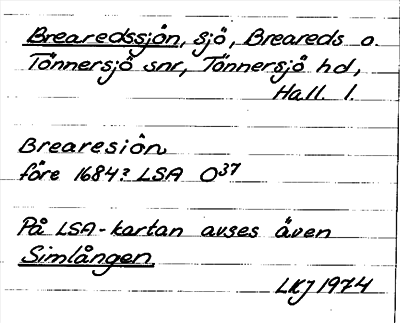 Brearedssjön, sjö, Breareds o.
Tönnersjö snr, Tönnersjö hd,
Hall. l.
Brearesiön
före 1684? LSA O37
På LSA-kartan avses även
Simlången
LKJ 1974